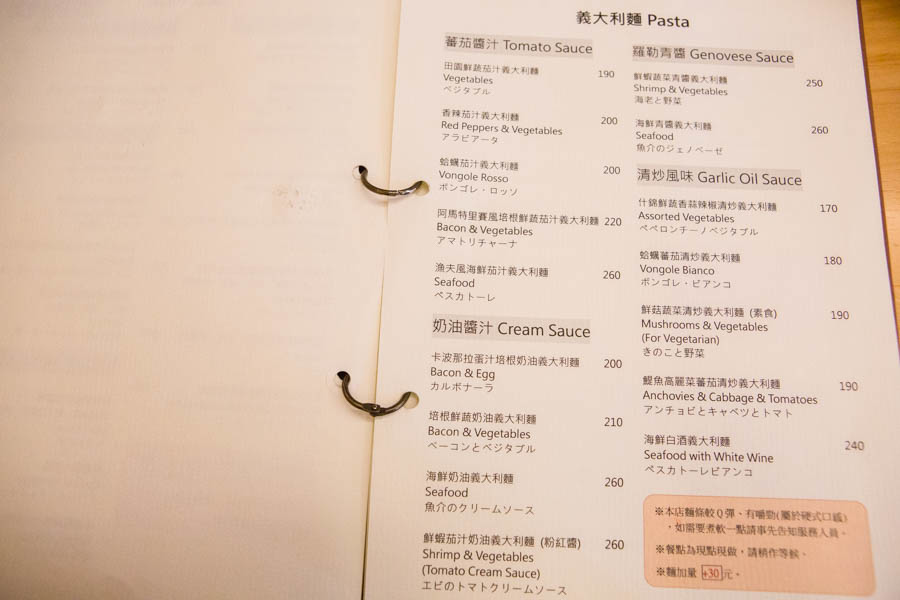 義大利麵 Pasta
蕃茄醬汁 Tomato Sauce
田園鮮蔬茄汁義大利麵 190
Vegetables
ベジタブル
香辣茄汁義大利麵 200
Red Peppers & Vegetables
アラビアータ
蛤蠣茄汁義大利麵 200
Vongole Rosso
ボンゴレ・ロッソ
阿馬特里賽風培根鮮蔬茄汁義大利麵 220
Bacon & Vegetables
アマトリチャーナ
漁夫風海鮮茄汁義大利麵 260
Seafood
ペスカトーレ
奶油醬汁 Cream Sauce
卡波那拉蛋汁培根奶油義大利麵 200
Bacon & Egg
カルボナーラ
培根鮮蔬奶油義大利麵 210
Bacon & Vegetables
ベーコンとベジタブル
海鮮奶油義大利麵 260
Seafood
魚介のクリームソース
鮮蝦茄汁奶油義大利麵 (粉紅醬) 260
Shrimp & Vegetables
(Tomato Cream Sauce)
エビのトマトクリームソース
羅勒青醬 Genovese Sauce
鮮蝦蔬菜青醬義大利麵 250
Shrimp & Vegetables
海老と野菜
海鮮青醬義大利麵 260
Seafood
魚介のジェノベーゼ
清炒風味 Garlic Oil Sauce
什錦鮮蔬香蒜辣椒清炒義大利麵 170
Assorted Vegetables
ペペロンチーノベジタブル
蛤蠣蕃茄清炒義大利麵 180
Vongole Bianco
ボンゴレ・ビアンコ
鮮菇蔬菜清炒義大利麵 (素食) 190
Mushrooms & Vegetables
(For Vegetarian)
きのこと野菜
鯷魚高麗菜蕃茄清炒義大利麵 190
Anchovies & Cabbage & Tomatoes
アンチョビとキャベツとトマト
海鮮白酒義大利麵 240
Seafood with White Wine
ペスカトーレビアンコ
※本店麵條較Q彈、有嚼勁(屬於硬式口感)
，如需要煮軟一點請事先告知服務人員。
※餐點為現點現做，請稍作等候。
※麵加量 +30 元。